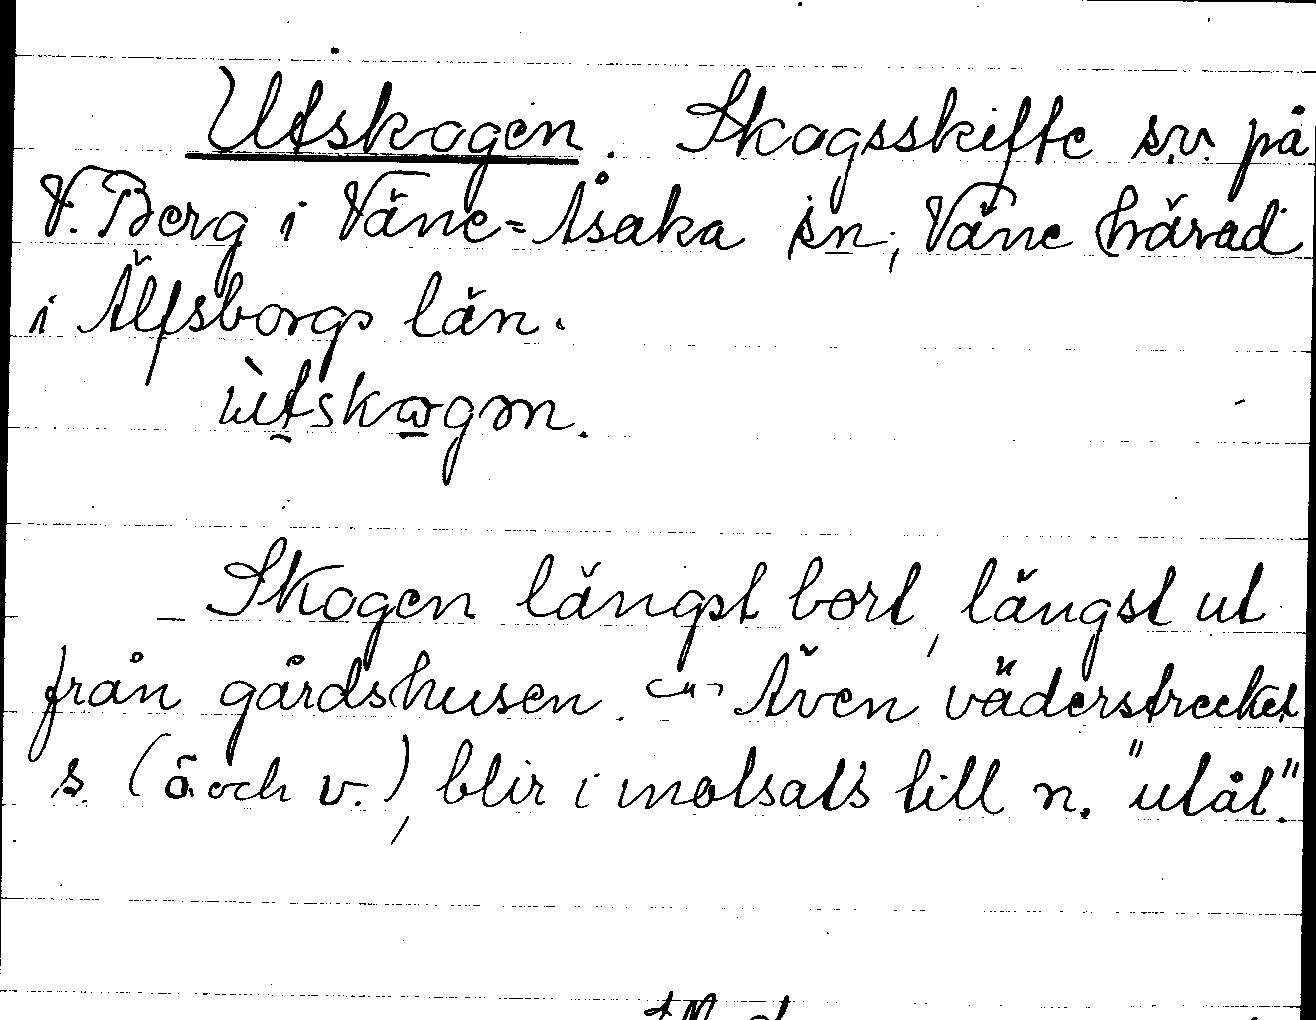 Utskogen. Skogsskifte s.v. på
V. Berg i Väne-Åsaka sn, Väne härad
i Älfsborgs län.
ùtskωgən.
Skogen längst bort, längst ut
från gårdshusen. Även väderstrecket
s. (ö. och v.), blir i motsats till n. "utåt".